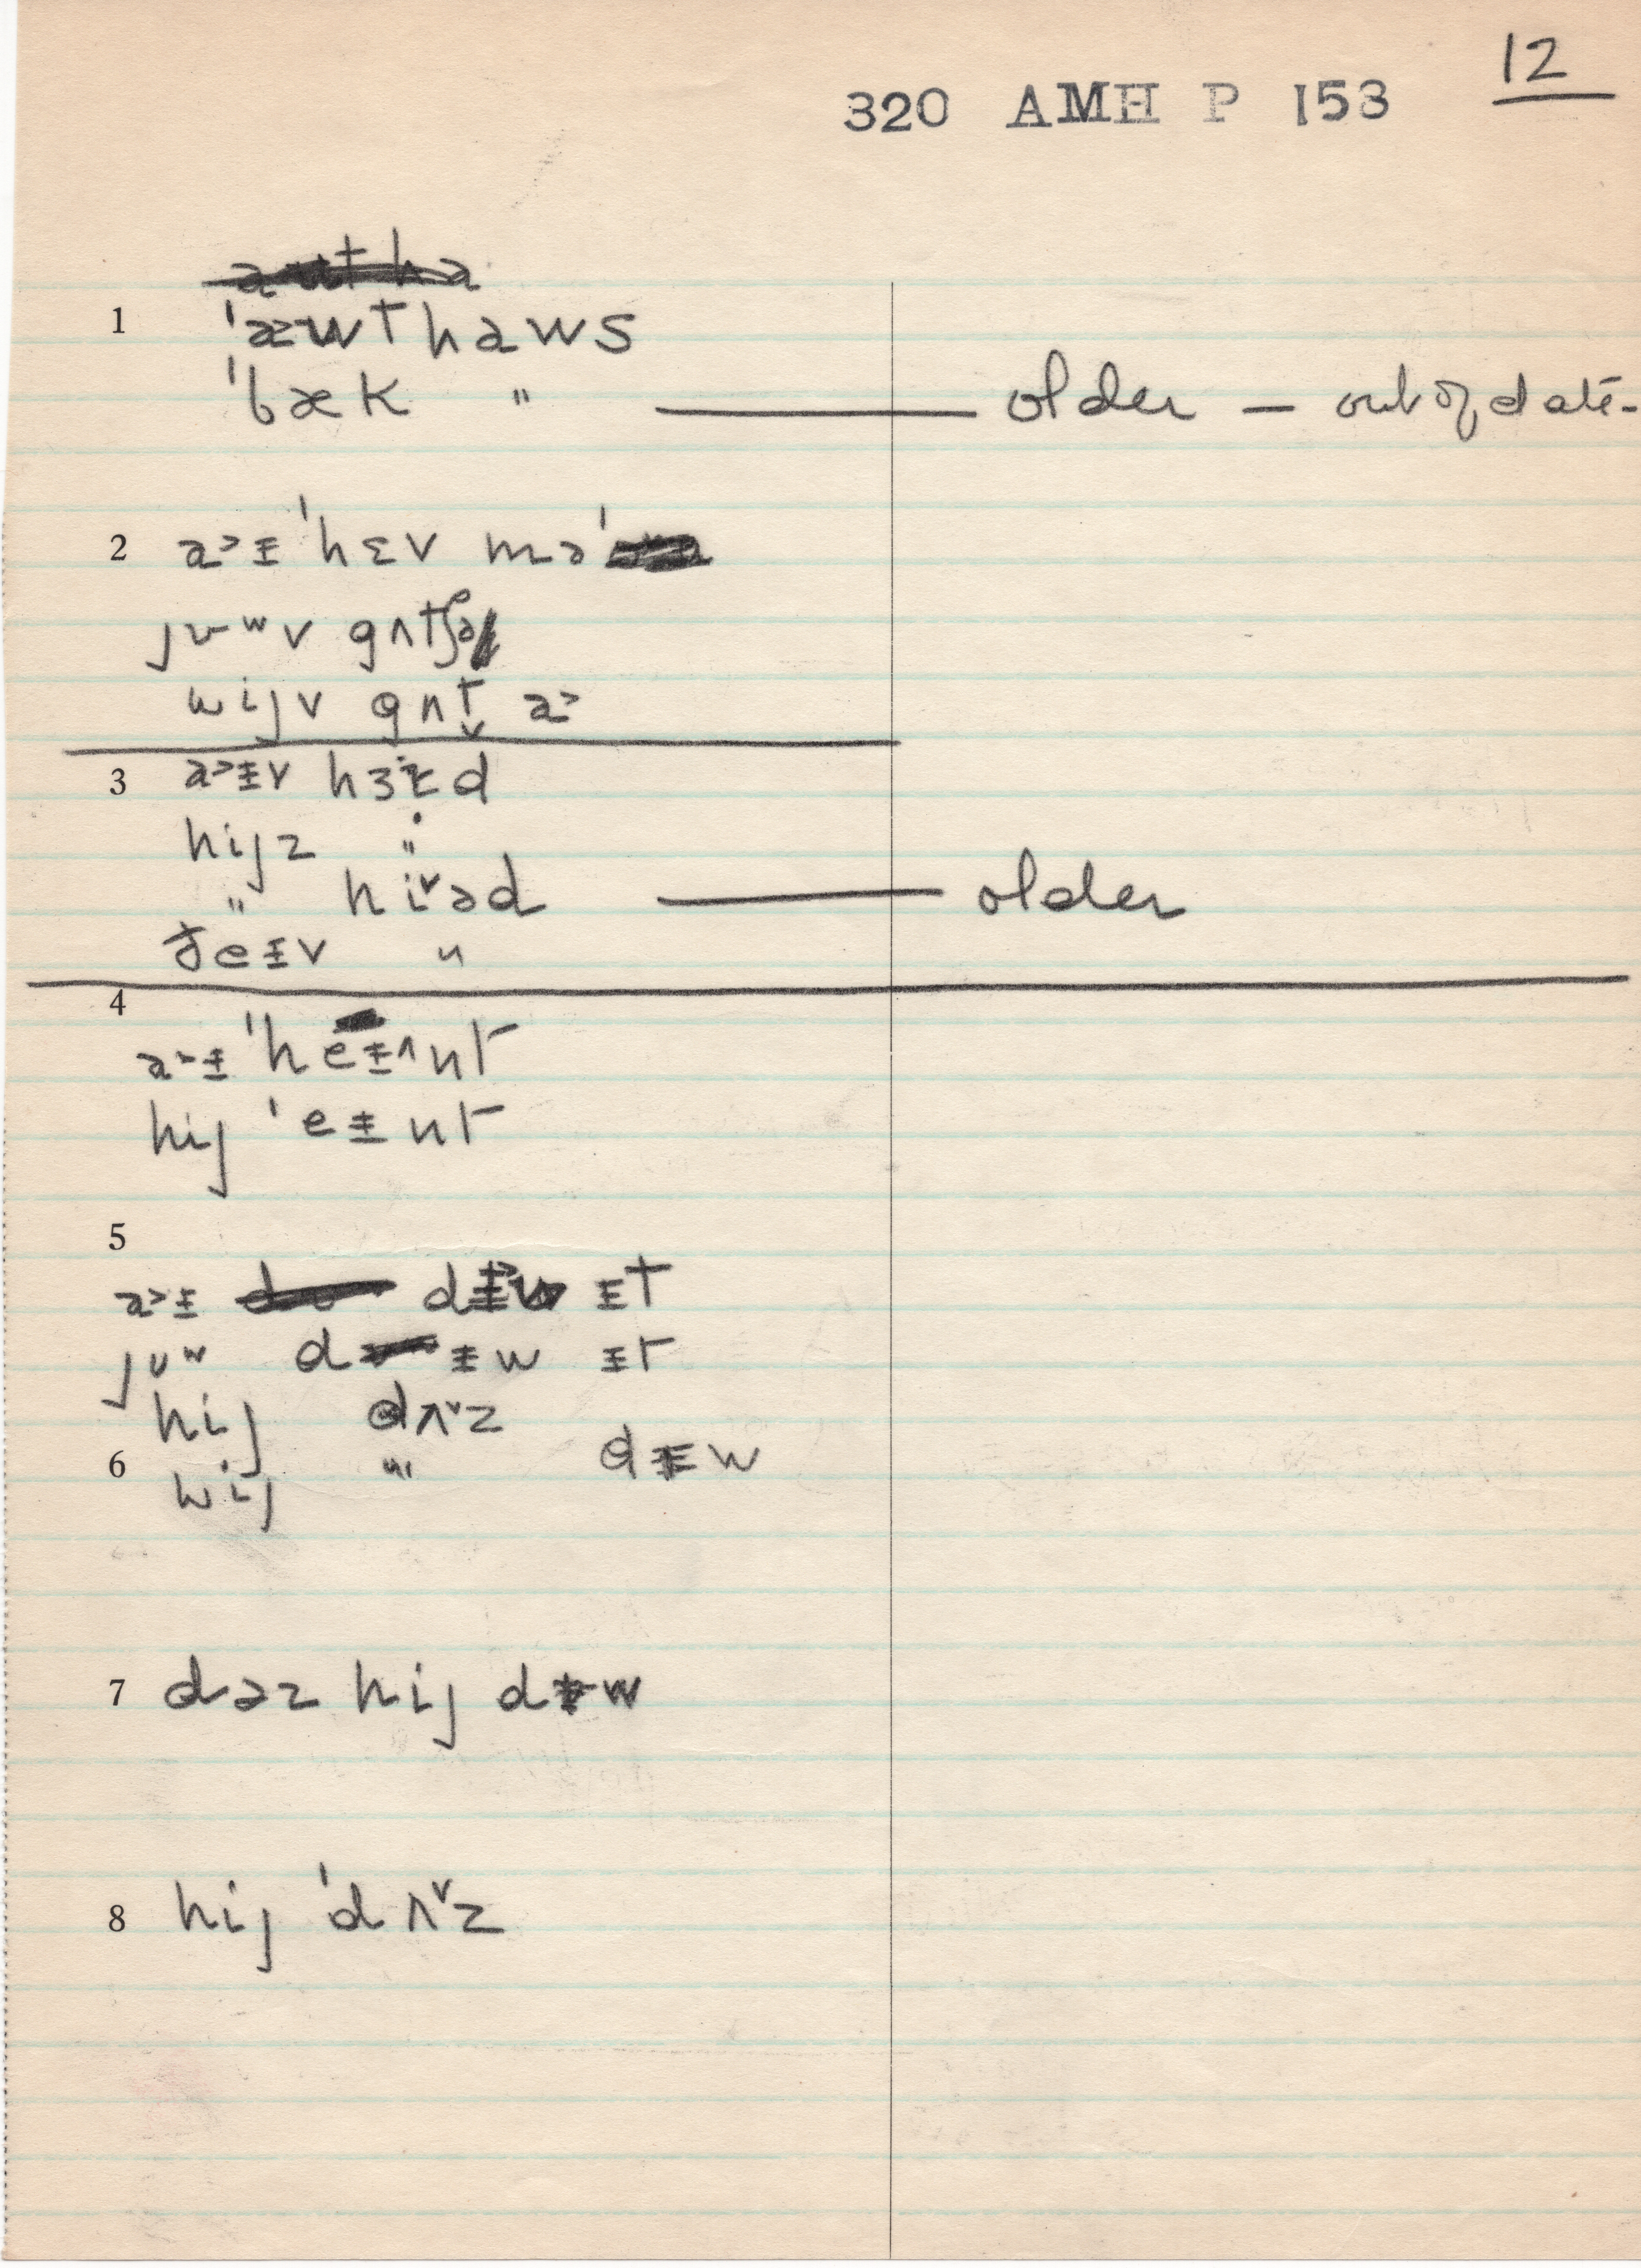 12
320 AMH P 153
1 ˈæwthaws
ˈbæk " — older — out of date -
2 a˃ɨ ˈhɛv mə
jʊʷv gʌtʃə
wijv gʌt̬ a˃
3 a˃ɨv hɜɨd
hijz "
" hi˅əd — older
ðeɨv "
4
a˃ɨ ˈheɨ^nt
hij ˈeɨnt
5
a˃ɨ dɨ˃w ɨt
jʊʷ dɨw ɨt
hij dʌ˅z
6 wij " dɨw
7 dəz hij dɨw
8 hij ˈdʌ˅z